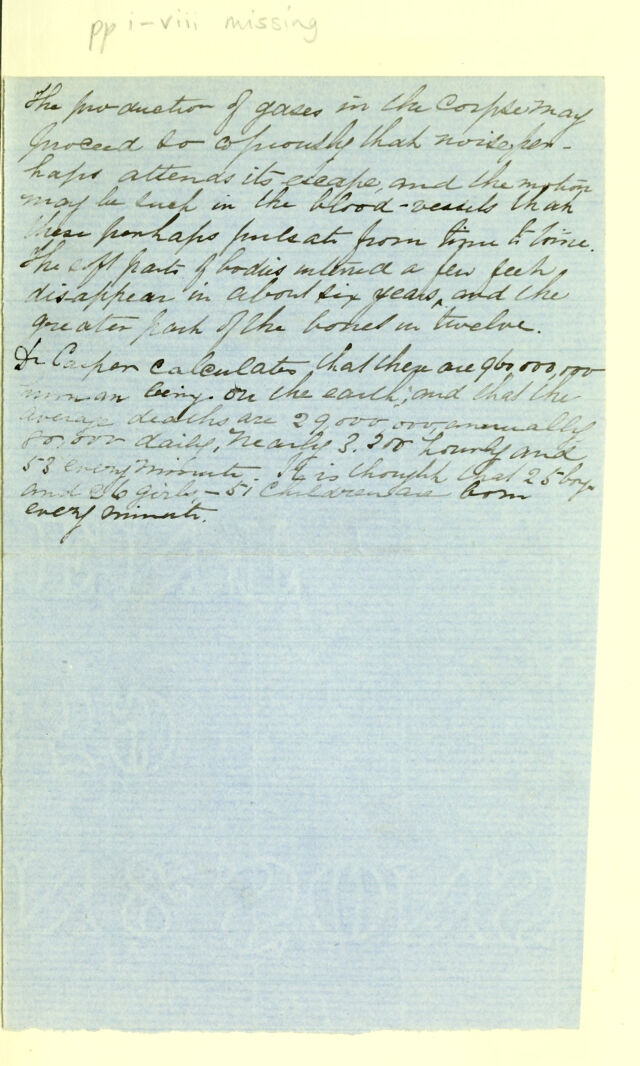 pp i-viii missing
The production of gases in the corpse may
proceed so copiously that noise per-
haps attends its escape, and the motion
may be such in the blood-vessels that
these perhaps pulsate from time to time.
The soft parts of bodies interred a few feet
disappear in about six years, and the
greater part of the bones in twelve.
Dr Casper calculates that there are 960,000,000
human beings on the earth; and that the
average deaths are 29,000,000 annually
80,000 daily, nearly 3.200 hourly and
53 every minute. It is thought that 25 boys
and 26 girls – 51 children are born
every minute.